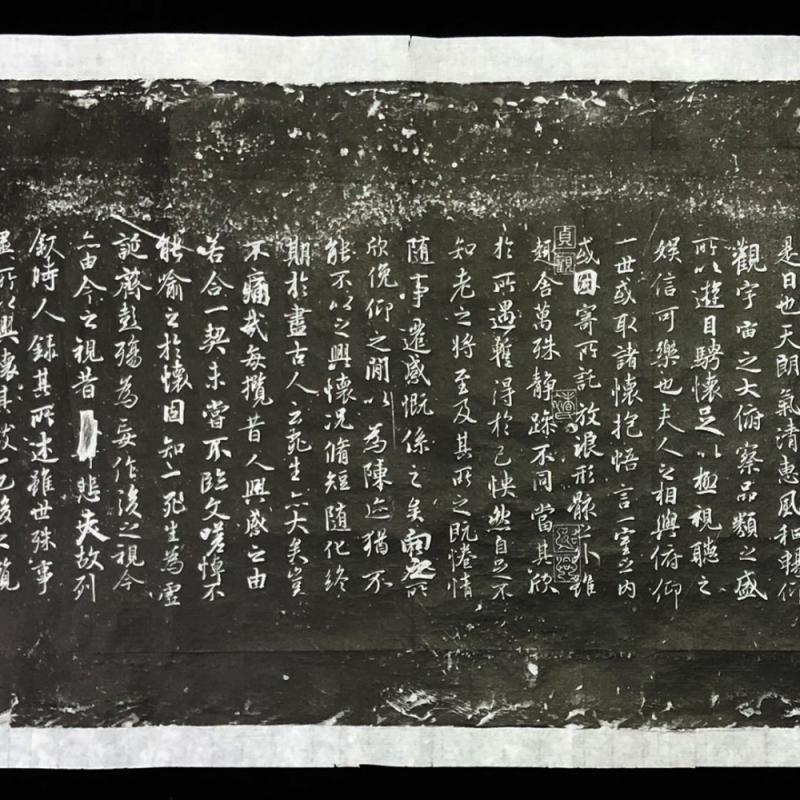 是日也天朗氣清惠風和暢仰
觀宇宙之大俯察品類之盛
所以遊目騁懷足以極視聽之
娛信可樂也夫人之相與俯仰
一世或取諸懷抱悟言一室之內
或因寄所託放浪形骸之外雖
貞觀
趣舍萬殊靜躁不同當其欣
於所遇暫得於己怏然自足不
知老之將至及其所之既惓情
隨事遷感慨係之矣向之所
欣俛仰之間以為陳迹猶不
能不以之興懷況脩短隨化終
期於盡古人云死生亦大矣豈
不痛哉每攬昔人興感之由
若合一契未嘗不臨文嗟悼不
能喻之於懷固知一死生為虛
誕齊彭殤為妄作後之視今
亦由今之視昔悲夫故列
叙時人錄其所述雖世殊事
異所以興懷其致一也後之覽